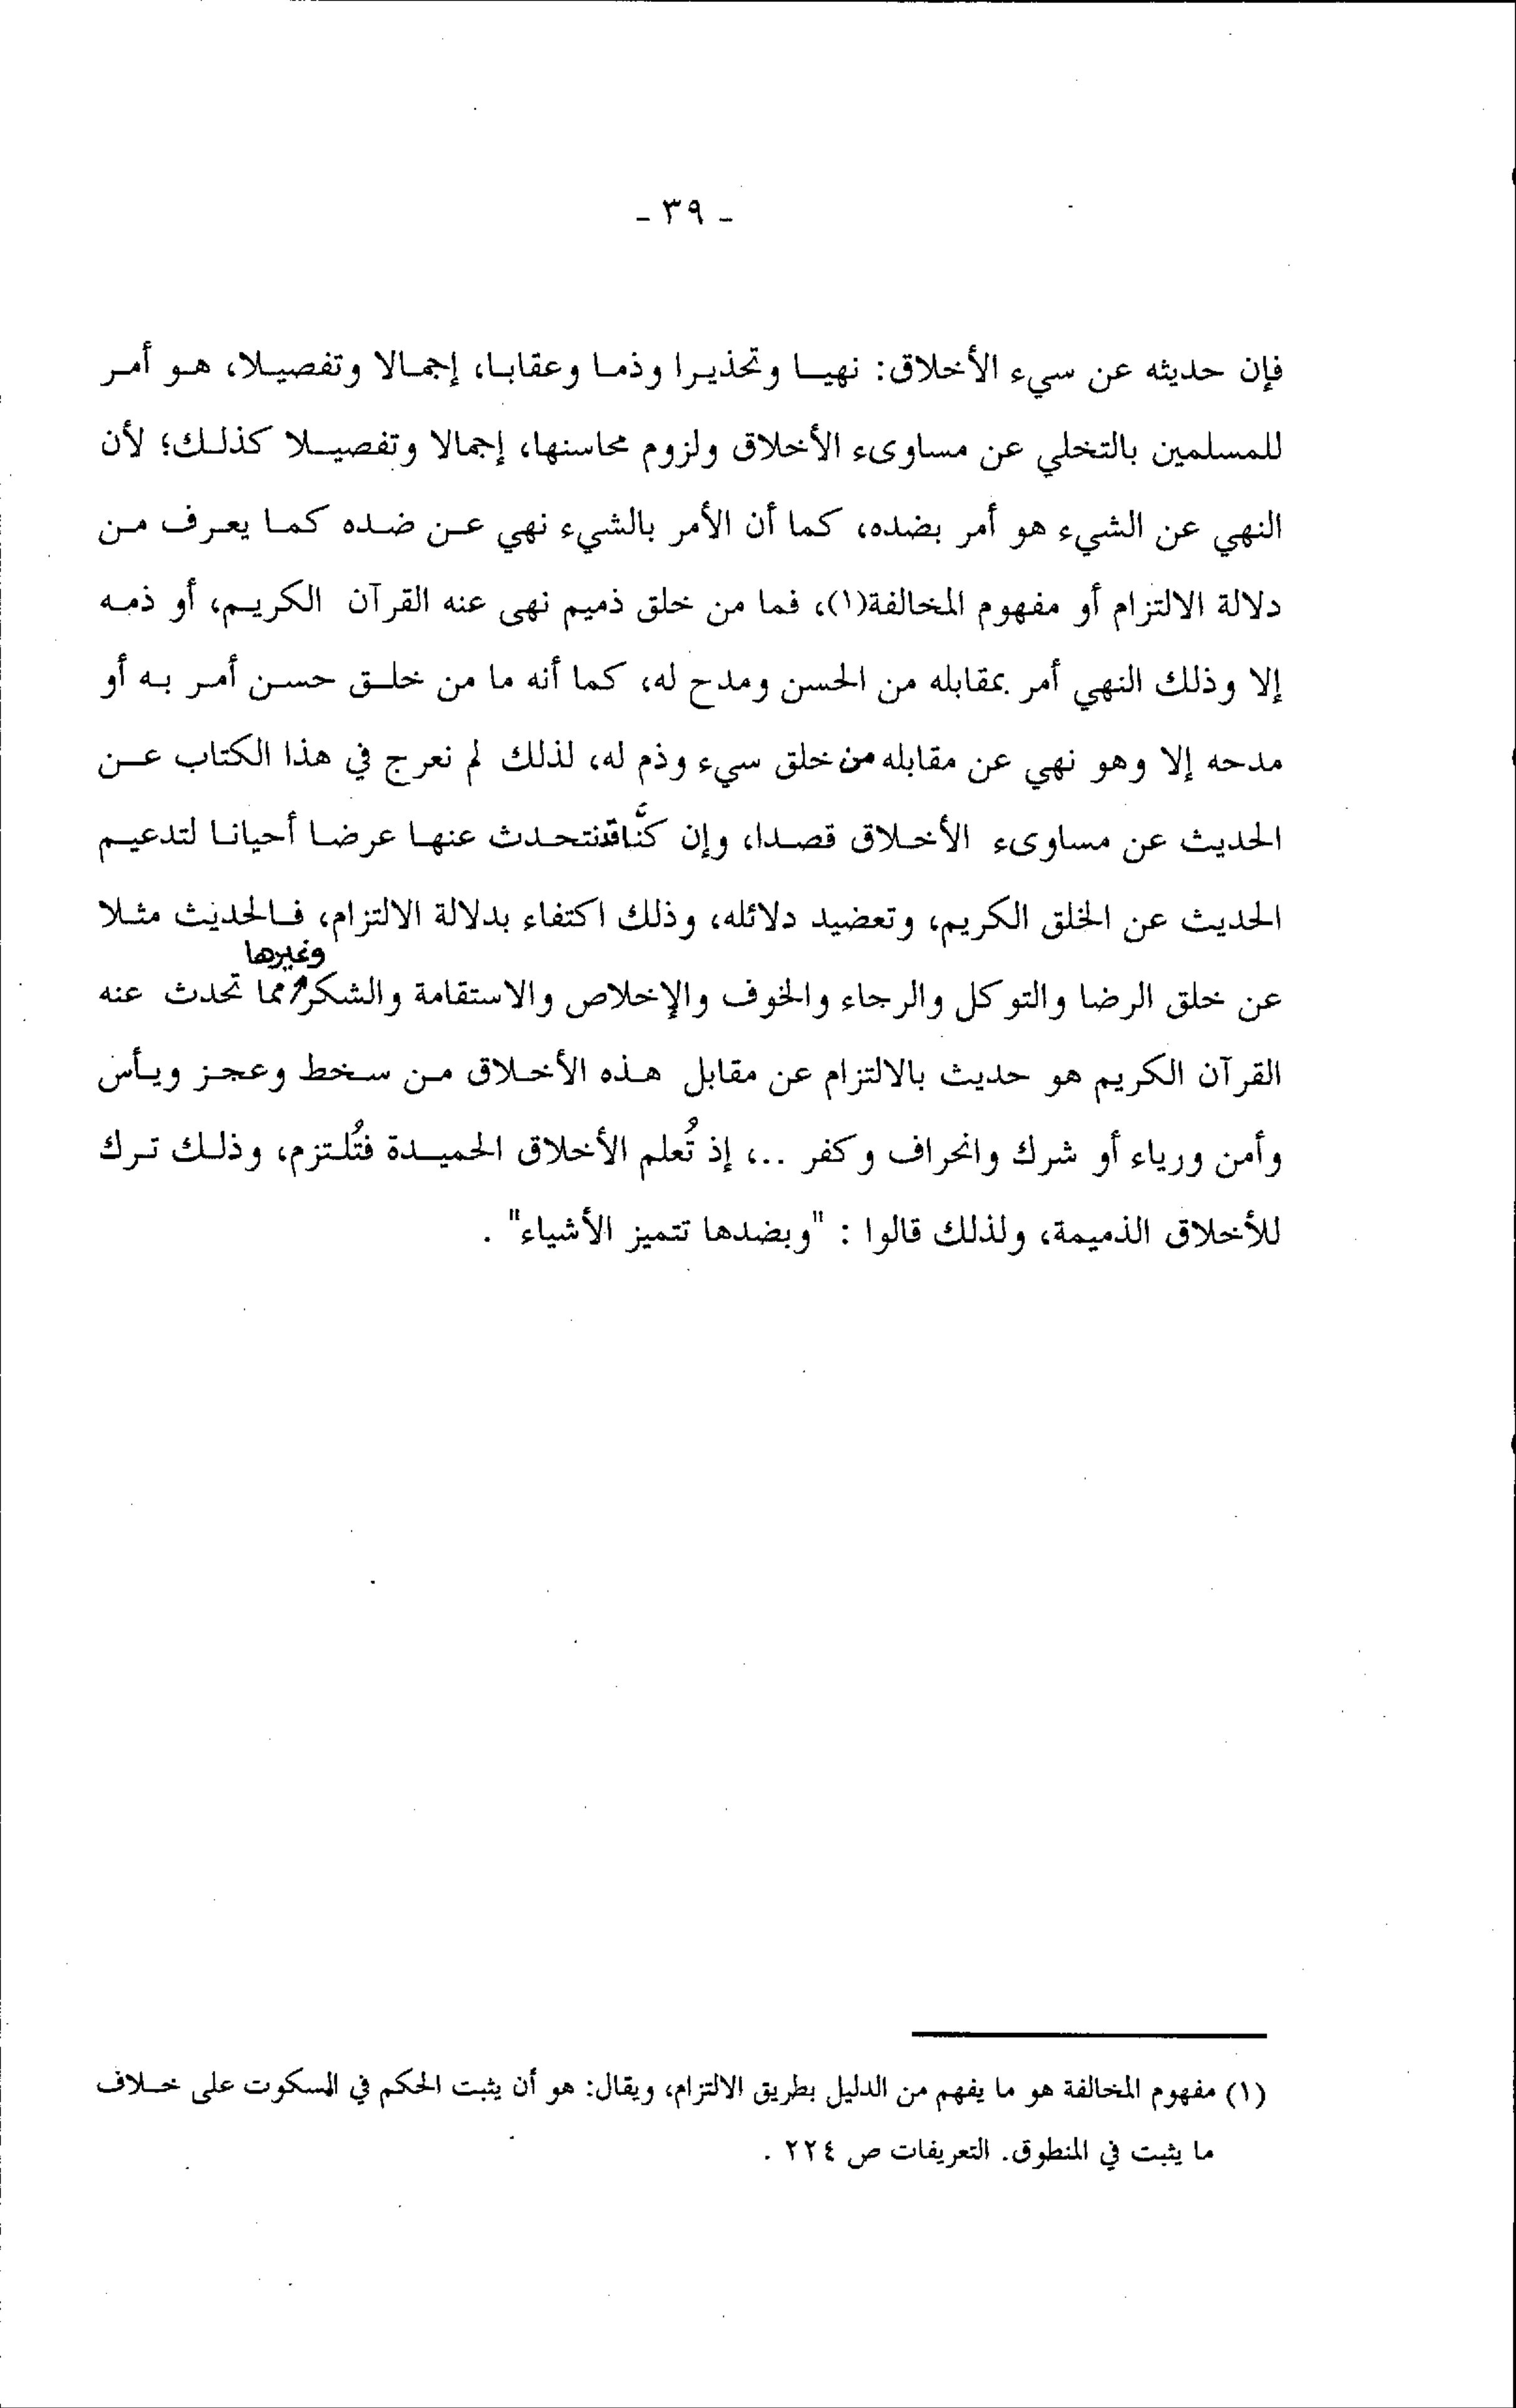 - ٣٩ -
فإن حديثه عن سيء الأخلاق: نهيا وتحذيرا وذما وعقابا، إجمالا وتفصيلا، هو أمر
للمسلمين بالتخلي عن مساوىء الأخلاق ولزوم محاسنها، إجمالا وتفصيلا كذلك؛ لأن
النهي عن الشيء هو أمر بضده، كما أن الأمر بالشيء نهي عن ضده كما يعرف من
دلالة الالتزام أو مفهوم المخالفة(١)، فما من خلق ذميم نهى عنه القرآن الكريم، أو ذمه
إلا وذلك النهي أمر بمقابله من الحسن ومدح له، كما أنه ما من خلق حسن أمر به أو
مدحه إلا وهو نهي عن مقابله من خلق سيء وذم له، لذلك لم نعرج في هذا الكتاب عن
الحديث عن مساوىء الأخلاق قصدا، وإن كنَّا قد نتحدث عنها عرضا أحيانا لتدعيم
الحديث عن الخلق الكريم، وتعضيد دلائله، وذلك اكتفاء بدلالة الالتزام، فالحديث مثلا
عن خلق الرضا والتوكل والرجاء والخوف والإخلاص والاستقامة والشكر وغيرها مما تحدث عنه
القرآن الكريم هو حديث بالالتزام عن مقابل هذه الأخلاق من سخط وعجز ويأس
وأمن ورياء أو شرك وانحراف وكفر ..، إذ تُعلم الأخلاق الحميدة فتُلتزم، وذلك ترك
للأخلاق الذميمة، ولذلك قالوا : "وبضدها تتميز الأشياء" .
(١) مفهوم المخالفة هو ما يفهم من الدليل بطريق الالتزام، ويقال: هو أن يثبت الحكم في المسكوت على خلاف
ما يثبت في المنطوق. التعريفات ص ٢٢٤ .